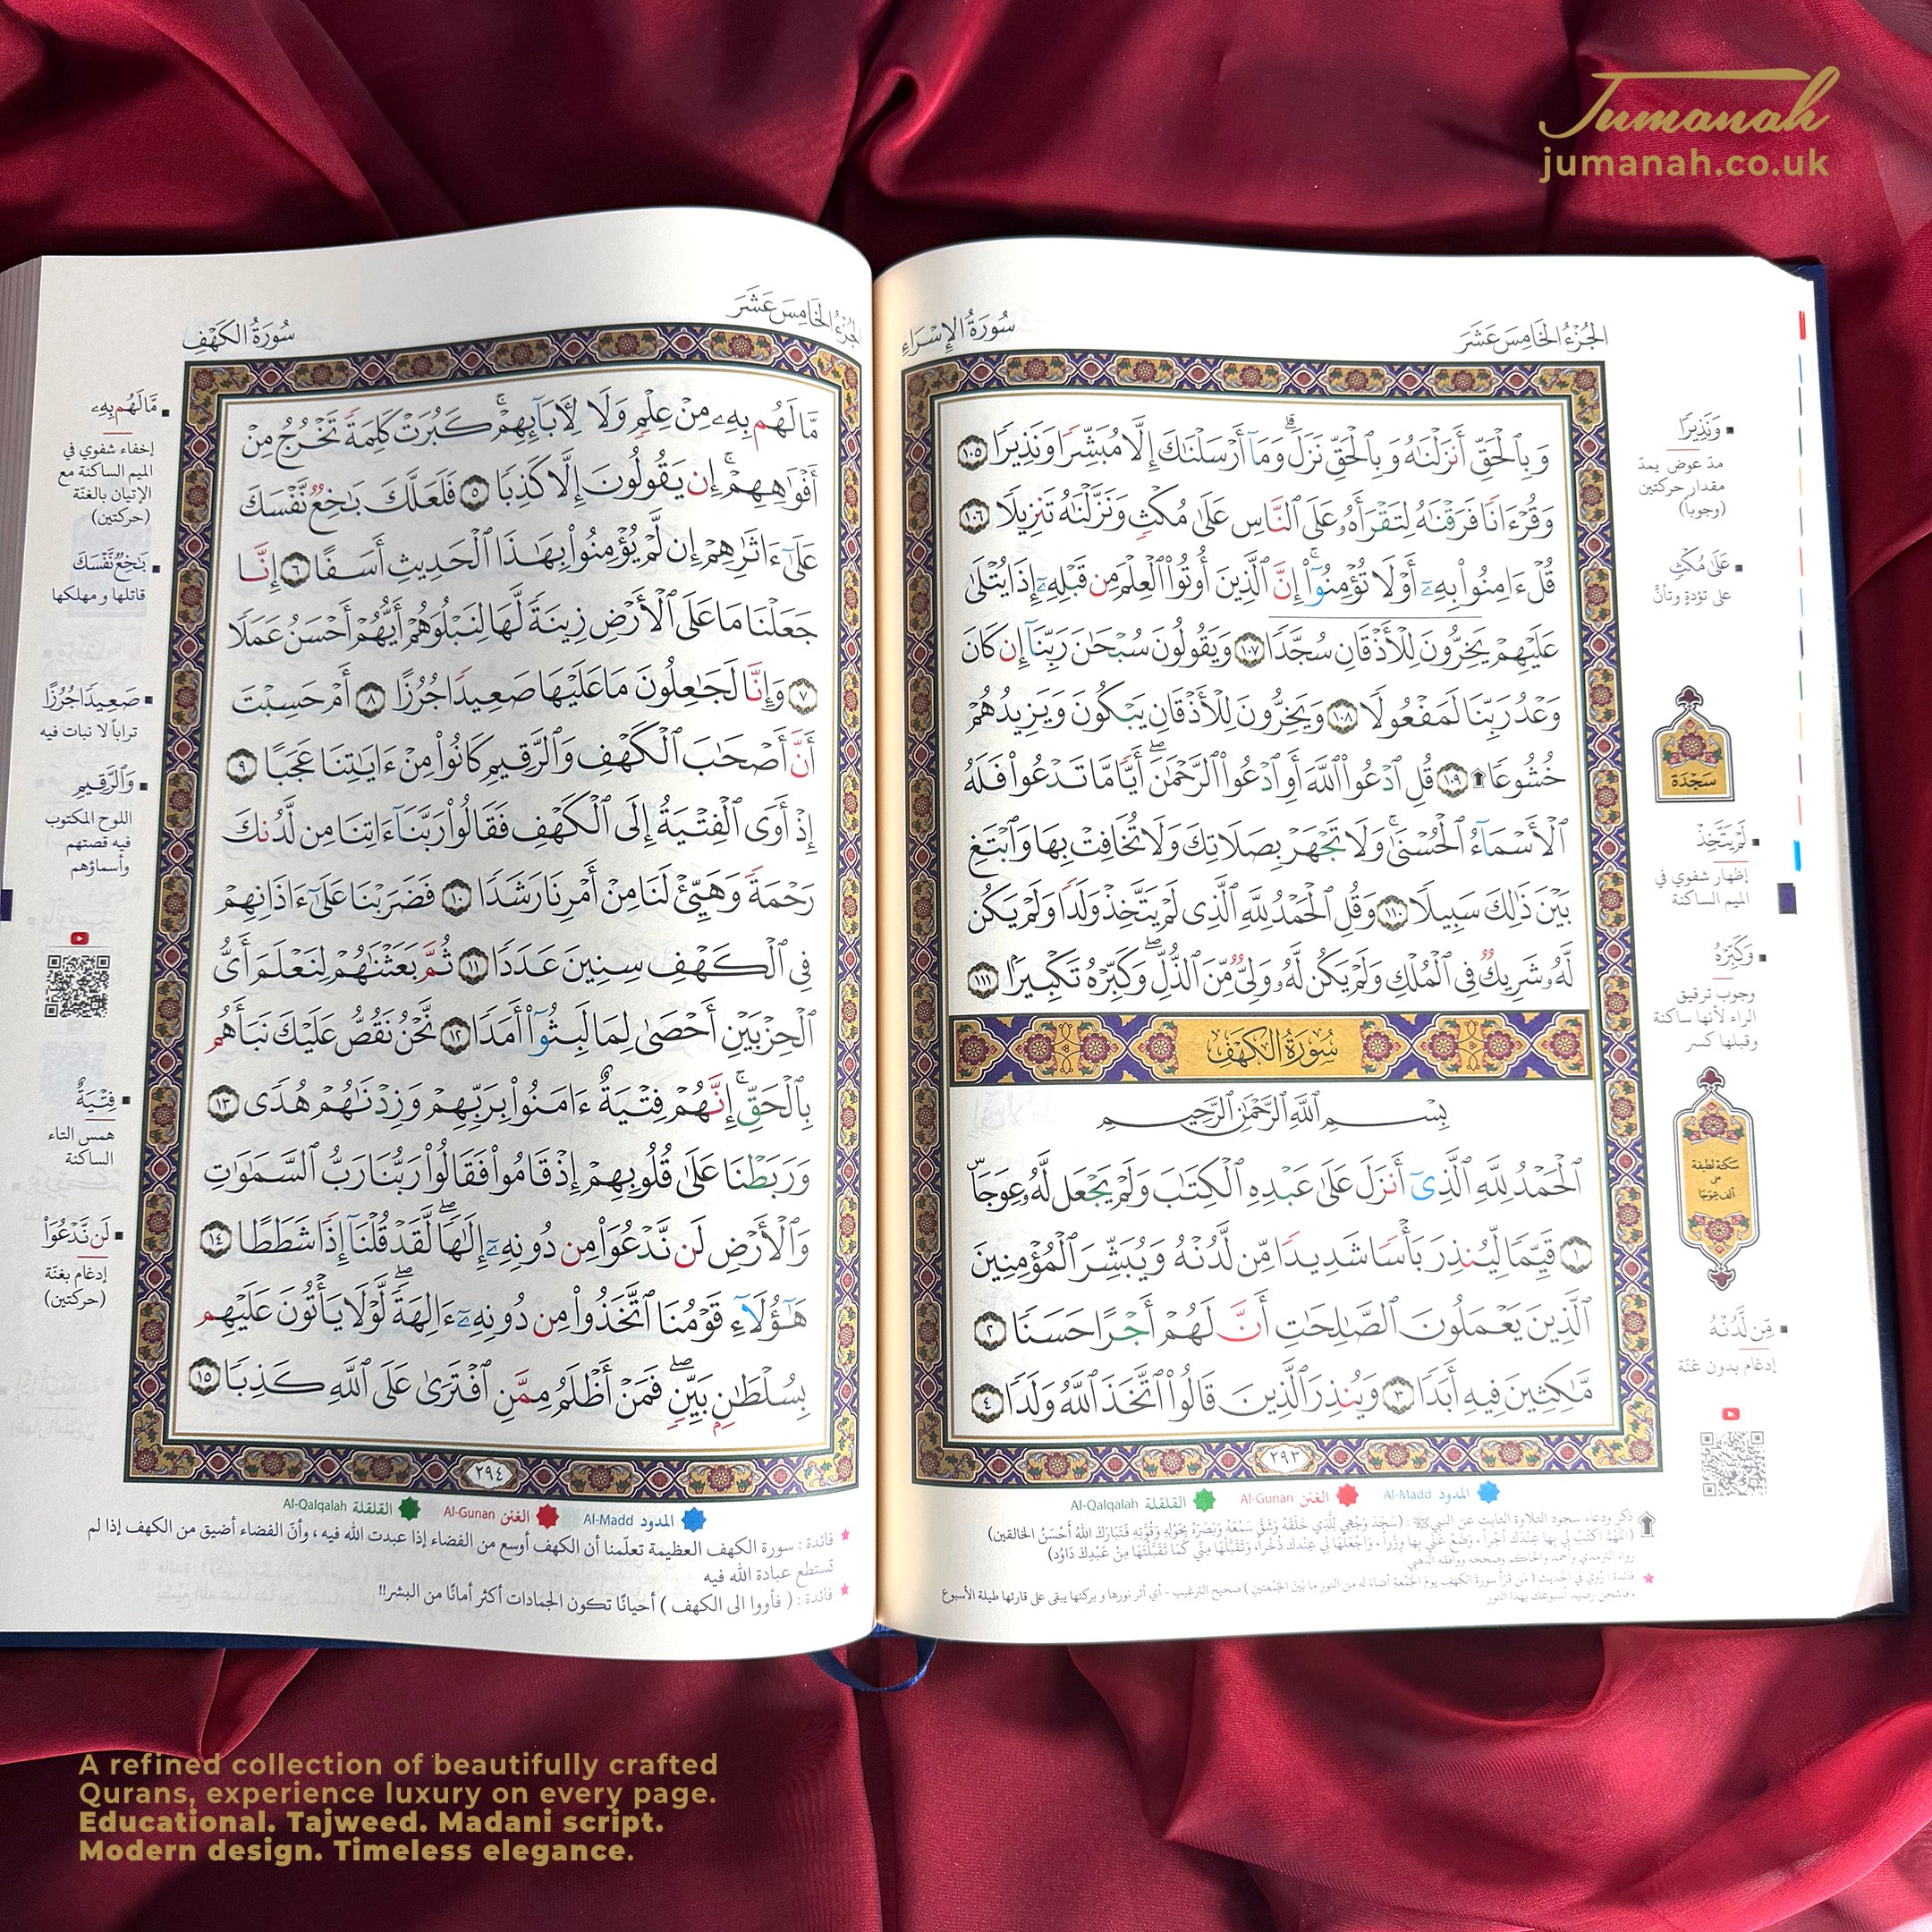 Jumanah
jumanah.co.uk
الجُزْءُ الخَامِسَ عَشَرَ
سُورَةُ الإِسْرَاءِ
وَبِٱلۡحَقِّ أَنزَلۡنَٰهُ وَبِٱلۡحَقِّ نَزَلَۗ وَمَآ أَرۡسَلۡنَٰكَ إِلَّا مُبَشِّرٗا وَنَذِيرٗا ١٠٥
وَقُرۡءَانٗا فَرَقۡنَٰهُ لِتَقۡرَأَهُۥ عَلَى ٱلنَّاسِ عَلَىٰ مُكۡثٖ وَنَزَّلۡنَٰهُ تَنزِيلٗا ١٠٦
قُلۡ ءَامِنُواْ بِهِۦٓ أَوۡ لَا تُؤۡمِنُوٓاْۚ إِنَّ ٱلَّذِينَ أُوتُواْ ٱلۡعِلۡمَ مِن قَبۡلِهِۦٓ إِذَا يُتۡلَىٰ
عَلَيۡهِمۡ يَخِرُّونَ لِلۡأَذۡقَانِ سُجَّدٗا ١٠٧ وَيَقُولُونَ سُبۡحَٰنَ رَبِّنَآ إِن كَانَ
وَعۡدُ رَبِّنَا لَمَفۡعُولٗا ١٠٨ وَيَخِرُّونَ لِلۡأَذۡقَانِ يَبۡكُونَ وَيَزِيدُهُمۡ
خُشُوعٗا ١٠٩ قُلِ ٱدۡعُواْ ٱللَّهَ أَوِ ٱدۡعُواْ ٱلرَّحۡمَٰنَۖ أَيّٗا مَّا تَدۡعُواْ فَلَهُ
ٱلۡأَسۡمَآءُ ٱلۡحُسۡنَىٰۚ وَلَا تَجۡهَرۡ بِصَلَاتِكَ وَلَا تُخَافِتۡ بِهَا وَٱبۡتَغِ
بَيۡنَ ذَٰلِكَ سَبِيلٗا ١١٠ وَقُلِ ٱلۡحَمۡدُ لِلَّهِ ٱلَّذِي لَمۡ يَتَّخِذۡ وَلَدٗا وَلَمۡ يَكُن
لَّهُۥ شَرِيكٞ فِي ٱلۡمُلۡكِ وَلَمۡ يَكُن لَّهُۥ وَلِيّٞ مِّنَ ٱلذُّلِّۖ وَكَبِّرۡهُ تَكۡبِيرَۢا ١١١
سُورَةُ الكَهۡفِ
بِسۡمِ ٱللَّهِ ٱلرَّحۡمَٰنِ ٱلرَّحِيمِ
ٱلۡحَمۡدُ لِلَّهِ ٱلَّذِيٓ أَنزَلَ عَلَىٰ عَبۡدِهِ ٱلۡكِتَٰبَ وَلَمۡ يَجۡعَل لَّهُۥ عِوَجَاۜ
١ قَيِّمٗا لِّيُنذِرَ بَأۡسٗا شَدِيدٗا مِّن لَّدُنۡهُ وَيُبَشِّرَ ٱلۡمُؤۡمِنِينَ
ٱلَّذِينَ يَعۡمَلُونَ ٱلصَّٰلِحَٰتِ أَنَّ لَهُمۡ أَجۡرًا حَسَنٗا ٢
مَّٰكِثِينَ فِيهِ أَبَدٗا ٣ وَيُنذِرَ ٱلَّذِينَ قَالُواْ ٱتَّخَذَ ٱللَّهُ وَلَدٗا ٤
٢٩٣
وَنَذِيرًا
مدّ عوض يمدّ
مقدار حركتين
(وجوباً)
عَلَىٰ مُكْثٍ
على تؤدةٍ وتأنٍّ
سَجْدَة
لَمْ يَتَّخِذْ
إظهار شفوي في
الميم الساكنة
وَكَبِّرْهُ
وجوب ترقيق
الراء لأنها ساكنة
وقبلها كسر
سكتة لطيفة
على
ألف عِوَجَا
مِّن لَّدُنْهُ
إدغام بدون غنّة
المدود Al-Madd الغنن Al-Gunan القلقلة Al-Qalqalah
ذكر ودعاء سجود التلاوة الثابت عن النبي ﷺ : (سَجَدَ وَجْهِي لِلَّذِي خَلَقَهُ وَشَقَّ سَمْعَهُ وَبَصَرَهُ بِحَوْلِهِ وَقُوَّتِهِ فَتَبَارَكَ اللهُ أَحْسَنُ الخالقين)
(اللَّهُمَّ اكْتُبْ لِي بِهَا عِنْدَكَ أَجْراً، وَضَعْ عَنِّي بِهَا وِزْراً، وَاجْعَلْهَا لِي عِنْدَكَ ذُخْراً، وَتَقَبَّلْهَا مِنِّي كَمَا تَقَبَّلْتَهَا مِنْ عَبْدِكَ دَاوُد)
رواه الترمذي وأحمد والحاكم وصححه ووافقه الذهبي
فائدة : رُوي في الحديث ( مَن قَرَأَ سورةَ الكهفِ يومَ الجُمْعةِ أضاءَ له من النورِ ما بَيْنَ الجُمْعتينِ ) صحيح الترغيب - أي أثر نورها و بركتها يبقى على قارئها طيلة الأسبوع
، فاشحن رصيد أسبوعك بهذا النور
الجُزْءُ الخَامِسَ عَشَرَ
سُورَةُ الكَهْفِ
مَّا لَهُم بِهِۦ مِنۡ عِلۡمٖ وَلَا لِأٓبَآئِهِمۡۚ كَبُرَتۡ كَلِمَةٗ تَخۡرُجُ مِنۡ
أَفۡوَٰهِهِمۡۚ إِن يَقُولُونَ إِلَّا كَذِبٗا ٥ فَلَعَلَّكَ بَٰخِعٞ نَّفۡسَكَ
عَلَىٰٓ ءَاثَٰرِهِمۡ إِن لَّمۡ يُؤۡمِنُواْ بِهَٰذَا ٱلۡحَدِيثِ أَسَفًا ٦ إِنَّا
جَعَلۡنَا مَا عَلَى ٱلۡأَرۡضِ زِينَةٗ لَّهَا لِنَبۡلُوَهُمۡ أَيُّهُمۡ أَحۡسَنُ عَمَلٗا
٧ وَإِنَّا لَجَٰعِلُونَ مَا عَلَيۡهَا صَعِيدٗا جُرُزًا ٨ أَمۡ حَسِبۡتَ
أَنَّ أَصۡحَٰبَ ٱلۡكَهۡفِ وَٱلرَّقِيمِ كَانُواْ مِنۡ ءَايَٰتِنَا عَجَبًا ٩
إِذۡ أَوَى ٱلۡفِتۡيَةُ إِلَى ٱلۡكَهۡفِ فَقَالُواْ رَبَّنَآ ءَاتِنَا مِن لَّدُنكَ
رَحۡمَةٗ وَهَيِّئۡ لَنَا مِنۡ أَمۡرِنَا رَشَدٗا ١٠ فَضَرَبۡنَا عَلَىٰٓ ءَاذَانِهِمۡ
فِي ٱلۡكَهۡفِ سِنِينَ عَدَدٗا ١١ ثُمَّ بَعَثۡنَٰهُمۡ لِنَعۡلَمَ أَيُّ
ٱلۡحِزۡبَيۡنِ أَحۡصَىٰ لِمَا لَبِثُوٓاْ أَمَدٗا ١٢ نَّحۡنُ نَقُصُّ عَلَيۡكَ نَبَأَهُم
بِٱلۡحَقِّۚ إِنَّهُمۡ فِتۡيَةٌ ءَامَنُواْ بِرَبِّهِمۡ وَزِدۡنَٰهُمۡ هُدٗى ١٣
وَرَبَطۡنَا عَلَىٰ قُلُوبِهِمۡ إِذۡ قَامُواْ فَقَالُواْ رَبُّنَا رَبُّ ٱلسَّمَٰوَٰتِ
وَٱلۡأَرۡضِ لَن نَّدۡعُوَاْ مِن دُونِهِۦٓ إِلَٰهٗاۖ لَّقَدۡ قُلۡنَآ إِذٗا شَطَطًا ١٤
هَٰٓؤُلَآءِ قَوۡمُنَا ٱتَّخَذُواْ مِن دُونِهِۦٓ ءَالِهَةٗۖ لَّوۡلَا يَأۡتُونَ عَلَيۡهِم
بِسُلۡطَٰنِۭ بَيِّنٖۖ فَمَنۡ أَظۡلَمُ مِمَّنِ ٱفۡتَرَىٰ عَلَى ٱللَّهِ كَذِبٗا ١٥
٢٩٤
مَّا لَهُم بِهِۦ
إخفاء شفوي في
الميم الساكنة مع
الإتيان بالغنّة
(حركتين)
بَٰخِعٞ نَّفْسَكَ
قاتلها و مهلكها
صَعِيدًا جُرُزًا
تراباً لا نبات فيه
وَٱلرَّقِيمِ
اللوح المكتوب
فيه قصتهم
وأسماؤهم
فِتْيَةٌ
همس التاء
الساكنة
لَن نَّدْعُوَاْ
إدغام بغنّة
(حركتين)
المدود Al-Madd الغنن Al-Gunan القلقلة Al-Qalqalah
فائدة : سورة الكهف العظيمة تعلّمنا أن الكهف أوسع من الفضاء إذا عبدت الله فيه ، وأنّ الفضاء أضيق من الكهف إذا لم
تستطع عبادة الله فيه
فائدة : ( فأووا الى الكهف ) أحيانًا تكون الجمادات أكثر أمانًا من البشر!!
A refined collection of beautifully crafted
Qurans, experience luxury on every page.
Educational. Tajweed. Madani script.
Modern design. Timeless elegance.